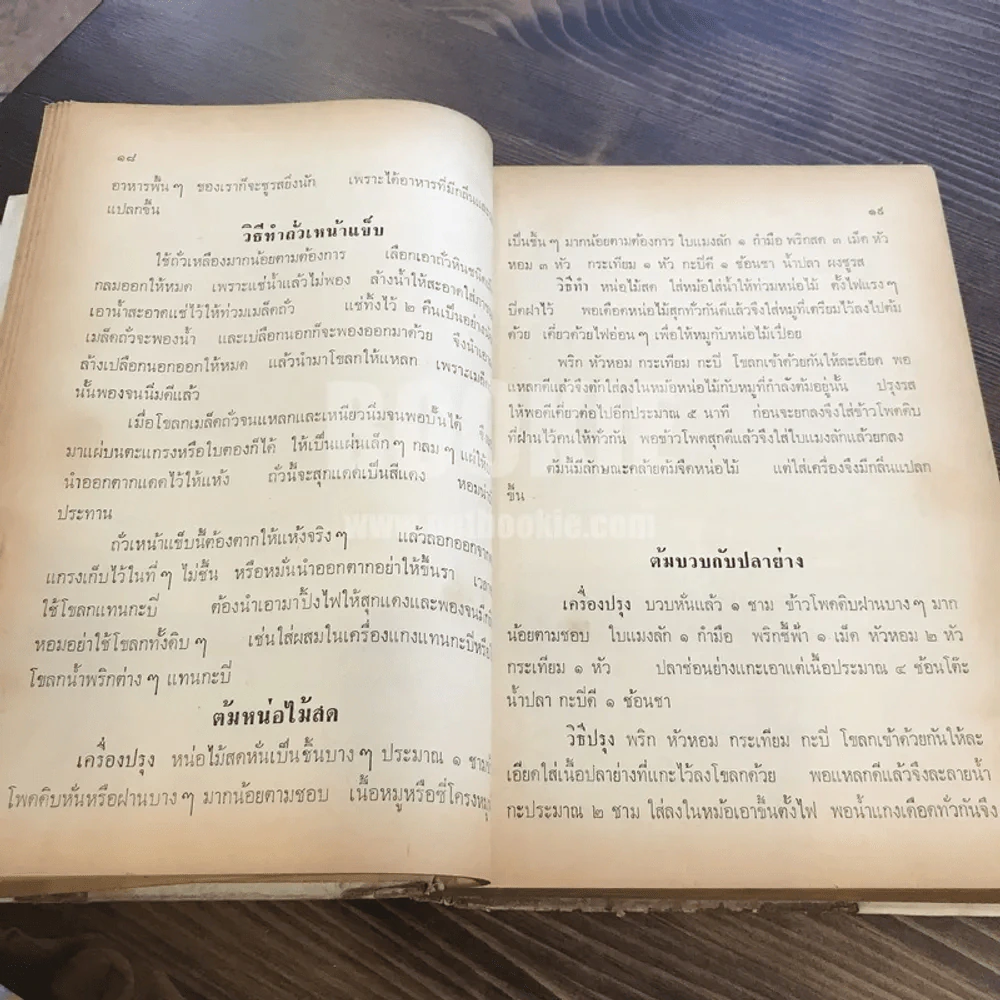 ๑๘
อาหารพื้น ๆ ของเราก็จะชูรสยิ่งนัก เพราะได้อาหารที่มีกลิ่น
แปลกขึ้น
วิธีทำถั่วเหน้าแข็บ
ใช้ถั่วเหลืองมากน้อยตามต้องการ เลือกเอาถั่วหินชนิด
กลมออกให้หมด เพราะแช่น้ำแล้วไม่พอง ล้างน้ำให้สะอาดใส่
เอาน้ำสะอาดแช่ไว้ให้ท่วมเมล็ดถั่ว แช่ทิ้งไว้ ๒ คืนเป็นอย่าง
เมล็ดถั่วจะพองน้ำ และเปลือกนอกก็จะพองออกมาด้วย จึงนำ
ล้างเปลือกนอกออกให้หมด แล้วนำมาโขลกให้แหลก เพราะ
นั้นพองจนนิ่มดีแล้ว
เมื่อโขลกเมล็ดถั่วจนแหลกและเหนียวนิ่มจนพอปั้นได้
มาแผ่บนตะแกรงหรือใบตองก็ได้ ให้เป็นแผ่นเล็ก ๆ กลม ๆ
นำออกตากแดดไว้ให้แห้ง ถั่วนี้จะสุกแดดเป็นสีแดง
ประทาน
ถั่วเหน้าแข็บนี้ต้องตากให้แห้งจริง ๆ แล้วถอดออกจาก
แกรงเก็บไว้ในที่ ๆ ไม่ชื้น หรือหมั่นนำออกตากอย่าให้ขึ้นรา
ใช้โขลกแทนกะปิ ต้องนำเอามาปิ้งไฟให้สุกแดงและพองจนมี
หอมอย่าใช้โขลกทั้งดิบ ๆ เช่นใส่ผสมในเครื่องแกงแทนกะปิหรือ
โขลกน้ำพริกต่าง ๆ แทนกะปิ
ต้มหน่อไม้สด
เครื่องปรุง หน่อไม้สดหั่นเป็นชิ้นบาง ๆ ประมาณ ๑ ชาม
โพดดิบหั่นหรือฝานบาง ๆ มากน้อยตามชอบ เนื้อหมูหรือซี่โครง
๑๙
เป็นชิ้น ๆ มากน้อยตามต้องการ ใบแมงลัก ๑ กำมือ พริกสด ๓ เม็ด หัว
หอม ๓ หัว กระเทียม ๑ หัว กะปิดี ๑ ช้อนชา น้ำปลา ผงชูรส
วิธีทำ หน่อไม้สด ใส่หม้อใส่น้ำให้ท่วมหน่อไม้ ตั้งไฟแรง ๆ
ปิดฝาไว้ พอเดือดหน่อไม้สุกทั่วกันดีแล้วจึงใส่หมูที่เตรียมไว้ลงไปต้ม
ด้วย เคี่ยวด้วยไฟอ่อน ๆ เพื่อให้หมูกับหน่อไม้เปื่อย
พริก หัวหอม กระเทียม กะปิ โขลกเข้าด้วยกันให้ละเอียด พอ
แหลกดีแล้วจึงตักใส่ลงในหม้อหน่อไม้กับหมูที่กำลังต้มอยู่นั้น ปรุงรส
ให้พอดีเคี่ยวต่อไปอีกประมาณ ๕ นาที ก่อนจะยกลงจึงใส่ข้าวโพดดิบ
ที่ฝานไว้คนให้ทั่วกัน พอข้าวโพดสุกดีแล้วจึงใส่ใบแมงลักแล้วยกลง
ต้มนี้มีลักษณะคล้ายต้มจืดหน่อไม้ แต่ใส่เครื่องจึงมีกลิ่นแปลก
ขึ้น
www.netbookie.com
ต้มบวบกับปลาย่าง
เครื่องปรุง บวบหั่นแล้ว ๑ ชาม ข้าวโพดดิบฝานบาง ๆ มาก
น้อยตามชอบ ใบแมงลัก ๑ กำมือ พริกชี้ฟ้า ๑ เม็ด หัวหอม ๒ หัว
กระเทียม ๑ หัว ปลาช่อนย่างแกะเอาแต่เนื้อประมาณ ๔ ช้อนโต๊ะ
น้ำปลา กะปิดี ๑ ช้อนชา
วิธีปรุง พริก หัวหอม กระเทียม กะปิ โขลกเข้าด้วยกันให้ละ
เอียดใส่เนื้อปลาย่างที่แกะไว้ลงโขลกด้วย พอแหลกดีแล้วจึงละลายน้ำ
กะประมาณ ๒ ชาม ใส่ลงในหม้อเอาขึ้นตั้งไฟ พอน้ำแกงเดือดทั่วกันจึง